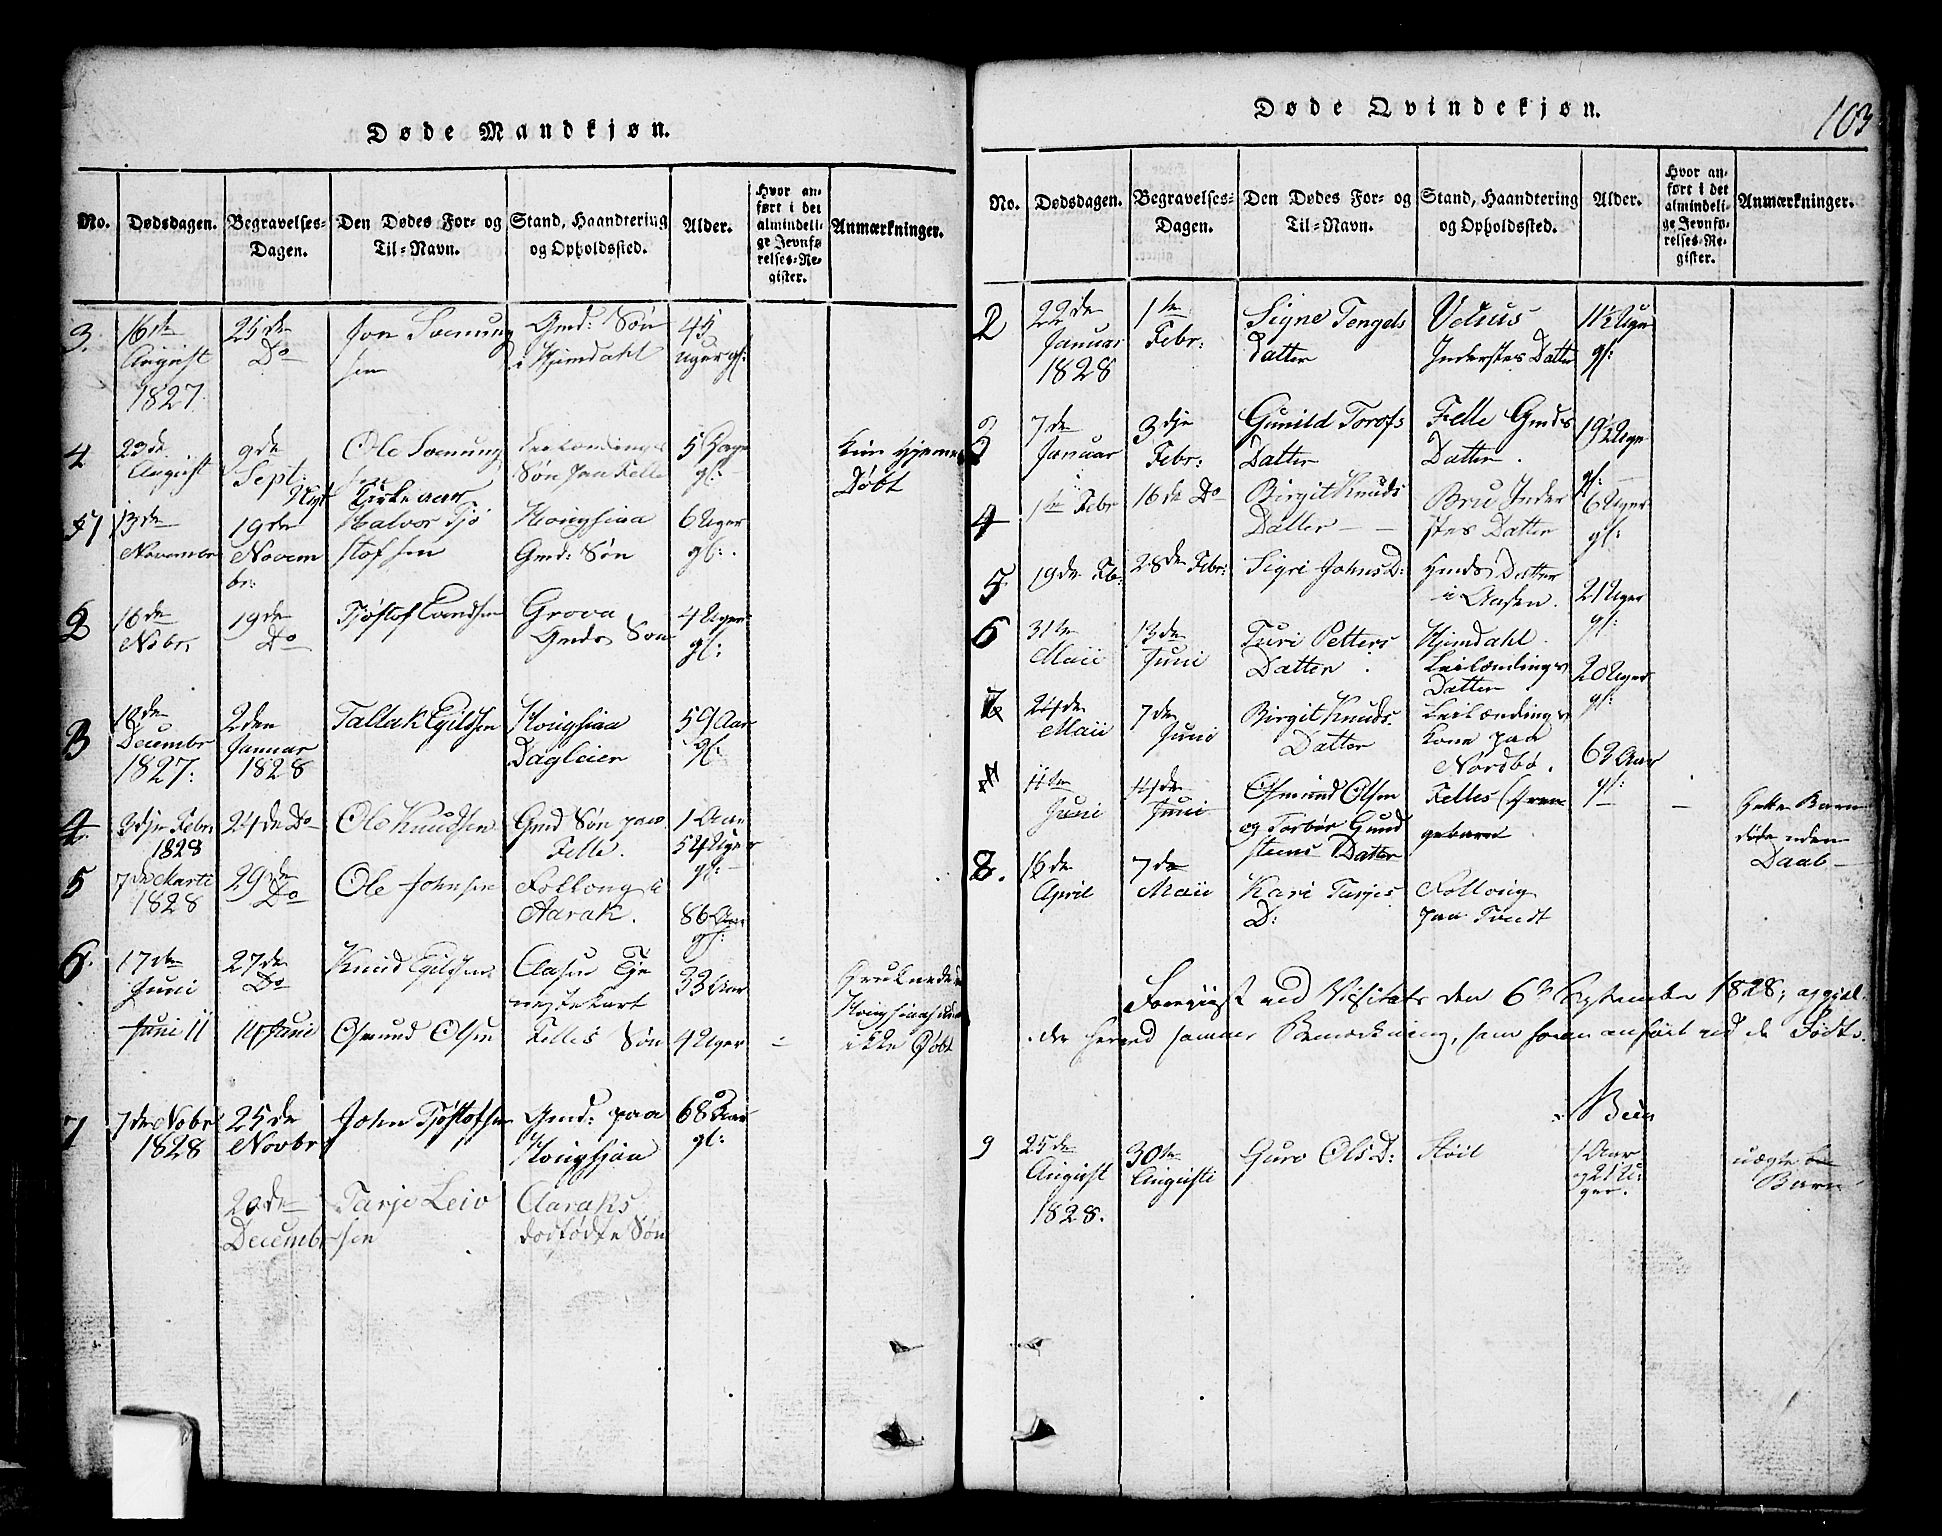 Døde Mandkjøn.
No.
Dødsdagen.
Begravelses-
Dagen.
Den Dødes For- og
Til-Navn.
Stand, Haandtering
og Opholdssted.
Alder.
Hvor an-
ført i det
almindeli-
ge Jevnfø
relses-Re-
gister.
Anmærkninger.
3.
16de
August
1827
25de
Do
Jon
sen
Gmd: Søn
i Hjemdahl
45
uger gl:
4
23de
August
9de
Sept:
Ole
Søn paa Felle
5 Dage
gl:
Hjeme
Døbt
Nyt Kirkeaar
1
13de
Novembr
19de
Novem
br:
Halvor Tjø
stofsen
Kongsjaa
Gmd: Søn
6 Uger
gl:
2
16de
Nobr.
19de
Do
Tjøstof Evendsen
Grova
Gmds Søn
4 Uger
gl:
3
18de
Decembr
1827:
2den
Januar
1828
Tallak Egildsen
Kongsjaa
Dagleier
59 Aar
gl:
4
3dje Febr.
1828
24de Do
Ole Knudsen
Gmd Søn paa
Felle.
1 Aar
54 Uger
gl:
5
7de Marti
1828
29de
Do
Ole Johnsen
Follong i
Aarak.
86 Aar
gl:
6.
17de
Juni
27de
Do
Knud Egildsen
Aasen Tje
nestekarl
33 Aar
Druknede i
Juni 11
14 Juni
Osmund Olsen
Felles Søn
4 Uger
ikke Døbt
7
7de Nobr
1828
25de
Novbr
John Tjøstofsen
Gmd: paa
Kongsjaa
68 Aar
gl:
20de
Decembr
Tarje Leiv
sen
Aaraks
dødfødte Søn
Døde Qvindekjøn.
103
No.
Dødsdagen.
Begravelses-
Dagen.
Den Dødes For- og
Til-Navn.
Stand, Haandtering
og Opholdssted.
Alder.
Hvor an-
ført i det
almindeli-
ge Jevnfø-
relses-Re-
gister.
Anmærkninger.
2
22de
Januar
1828
1te
Febr:
Signe Tengels
Datter
Inderstes Datter
11½ Uger
gl:
3
7de
Januar
3dje
Febr:
Gunild Torofs
Datter
Felle Gmds
Datter.
19½ Uge
gl:
4
1te Febr
16de Do
Birgit Knuds
Datter
Bru Inder
stes Datter
6 Uger
gl:
5
19de Feb:
28de Febr:
Sigri Johns D:
Gmds Datter
i Aasen.
21 Uger
gl:
6
31te
Maii
13de
Juni
Turi Petters
Datter
Hjemdahl
Leilændings
Datter
20 Uger
gl:
7
24de
Maii
7de
Juni
Birgit Knuds
Datter
Leilændings
Kone paa
Nordbø.
63 Aar
gl:
11te
Juni
14de
Juni
Osmund Olsen
og Torbør Gund
steins Datter
Felles
Barn
døde uden
Daab
8.
16de
April
7de
Maii
Kari Tarjes
D:
Follong
paa Tvedt
Foreviist ved Visitats den 6te September 1828,
samme Bemærkning, som foran anført ved de Fødte.
9
25de
August
1828.
30te
Augusti
Guro Ols D:
1 Aar
og 21 U:
ger.
uægte
Barn